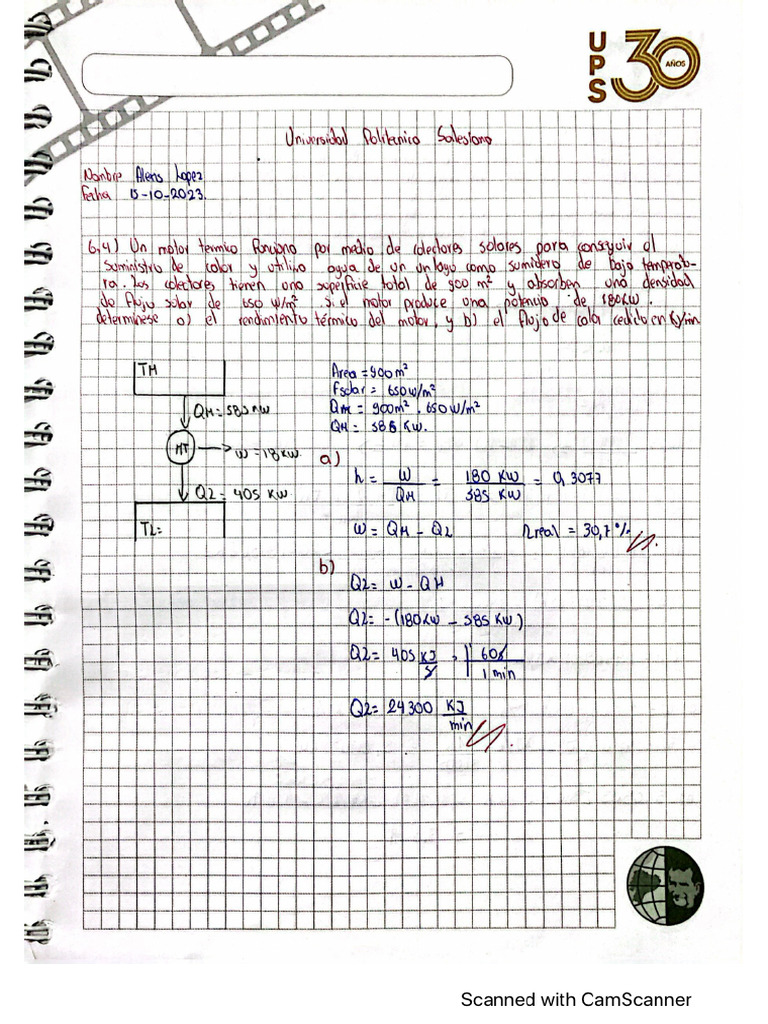 UPS 30 AÑOS
Universidad Politecnica Salesiana
Nombre Alexis Lopez
Fecha 15-10-2023.
6.4) Un motor termico funciona por medio de colectores solares para conseguir el
suministro de calor y utiliza agua de un un lago como sumidero de baja temperatu-
ra. Los colectores tienen una superficie total de 900 m² y absorben una densidad
de flujo solar de 650 W/m². si el motor produce una potencia de 180KW.
determinese a) el rendimiento térmico del motor, y b) el flujo de calor cedido en KJ/min
TH
QH = 585 KW
MT
W = 18 KW.
Q2 = 405 KW
T2=
Area = 900m²
Fsolar = 650 w/m²
QH = 900m² . 650 w/m²
QH = 585 KW.
a)
h = W/QH = 180 KW/585 KW = 0,3077
W = QH - Q2
nreal = 30,7%
b)
Q2 = W - QH
Q2 = -(180KW - 585 KW)
Q2 = 405 KJ/s . | 60s/1 min
Q2 = 24300 KJ/min
Scanned with CamScanner